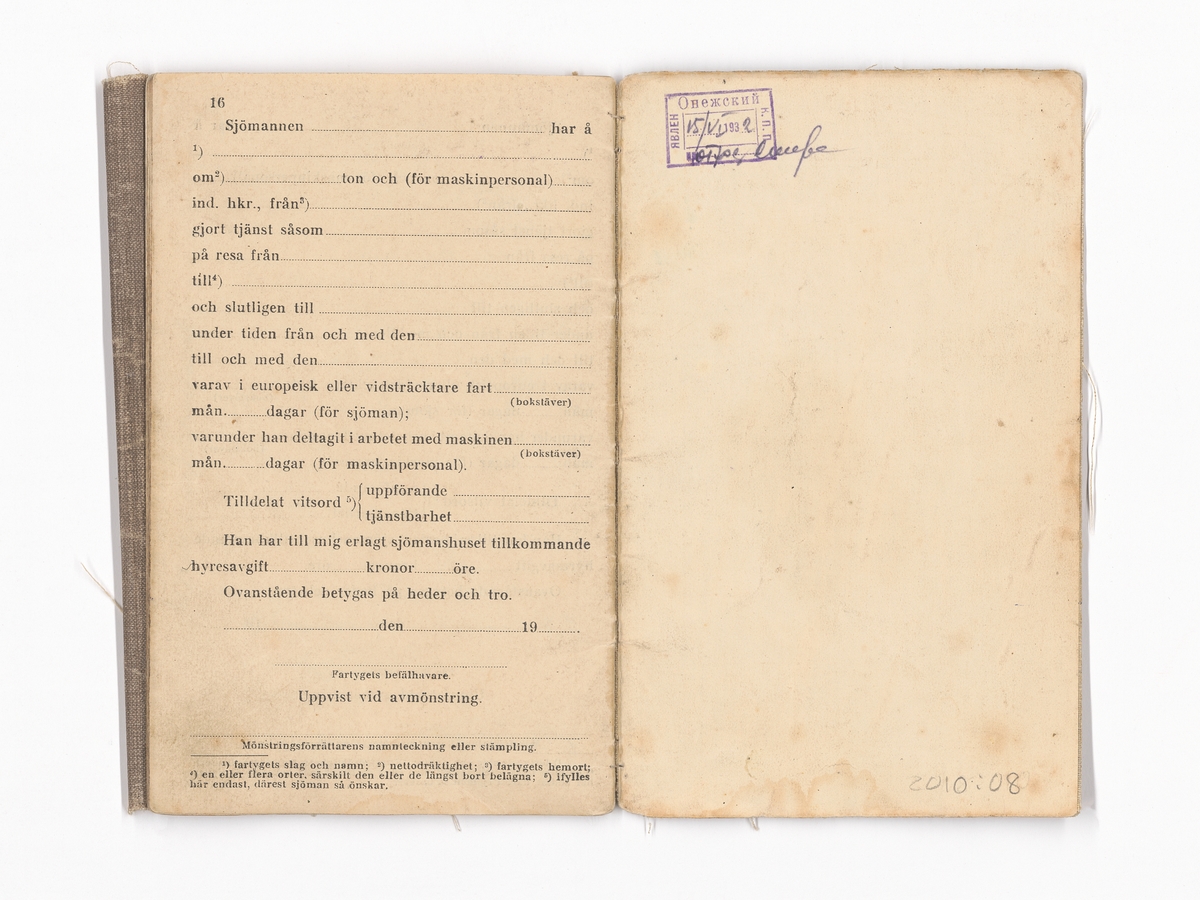 16
Sjömannen har å
¹)
om²) ton och (för maskinpersonal)
ind. hkr., från³)
gjort tjänst såsom
på resa från
till⁴)
och slutligen till
under tiden från och med den
till och med den
varav i europeisk eller vidsträcktare fart
(bokstäver)
mån. dagar (för sjöman);
varunder han deltagit i arbetet med maskinen
(bokstäver)
mån. dagar (för maskinpersonal).
Tilldelat vitsord ⁵) { uppförande
tjänstbarhet
Han har till mig erlagt sjömanshuset tillkommande
hyresavgift kronor öre.
Ovanstående betygas på heder och tro.
den 19
Fartygets befälhavare.
Uppvist vid avmönstring.
Mönstringsförrättarens namnteckning eller stämpling.
¹) fartygets slag och namn; ²) nettodräktighet; ³) fartygets hemort;
⁴) en eller flera orter, särskilt den eller de längst bort belägna; ⁵) ifylles
här endast, därest sjöman så önskar.
Онежский
ЯВЛЕН
К. П. П.
15/VI 1932
2010:08